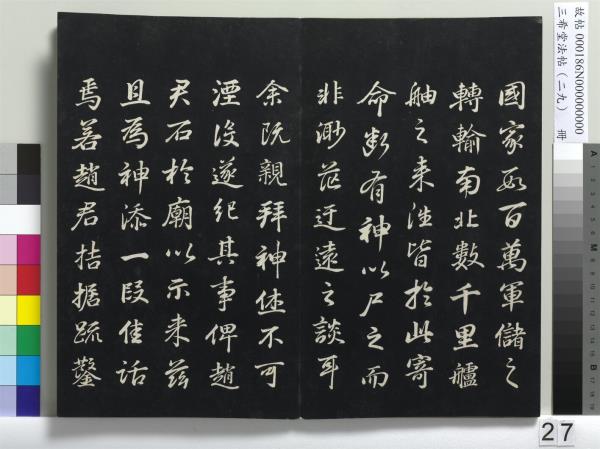 國家數百萬軍儲之
轉輸南北數千里艫
舳之来往皆於此寄
命斷有神以尸之而
非渺茫迂遠之談耳
余既親拜神休不可
湮没遂紀其事俾趙
君石於廟以示来茲
且為神添一段佳話
焉若趙君拮据疏鑿
故帖 000186N000000000
三希堂法帖(二九) 冊
27